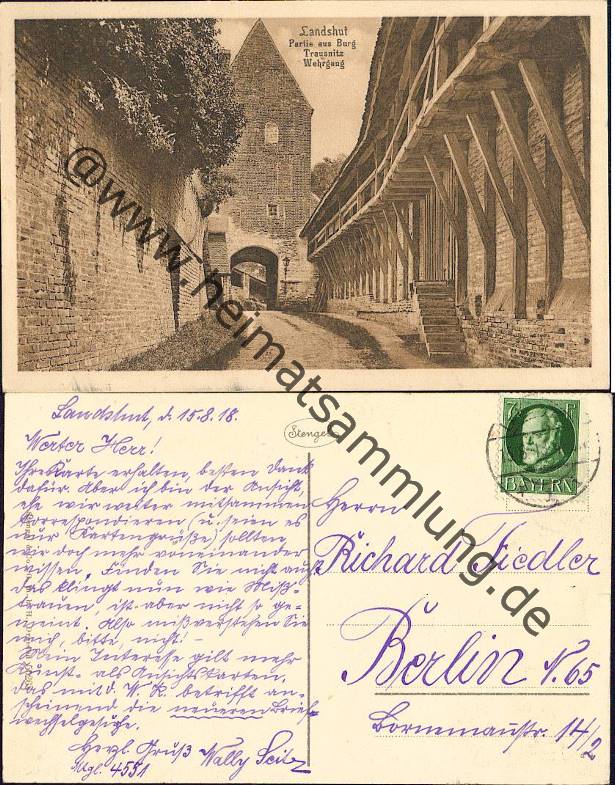 Landshut
Partie aus Burg
Trausnitz
Wehrgang
@www.heimatsammlung.de
Landshut, d. 15.8.18.
Werter Herr!
Ihre Karte erhalten, besten Dank
dafür. Aber ich bin der Ansicht,
ehe wir weiter mitsammen
korrespondieren (u. seien es
nur Kartengrüße) sollten
wir doch mehr voneinander
wissen. Finden Sie nicht auch?
das klingt nun wie Miß-
trauen, ist aber nicht so ge-
meint. Also mißverstehen Sie
mich, bitte, nicht! –
Mein Interesse gilt mehr
Kunst- als Ansichtskarten.
Das mit d. W. K. betrifft an-
scheinend die neueren Brief-
wechselgesuche.
Herzl. Gruß Wally Seitz
Mgl. 4551
Stengel
7½ Pf
BAYERN
Herrn
Richard Fiedler
Berlin N. 65
Bornemannstr. 14/2